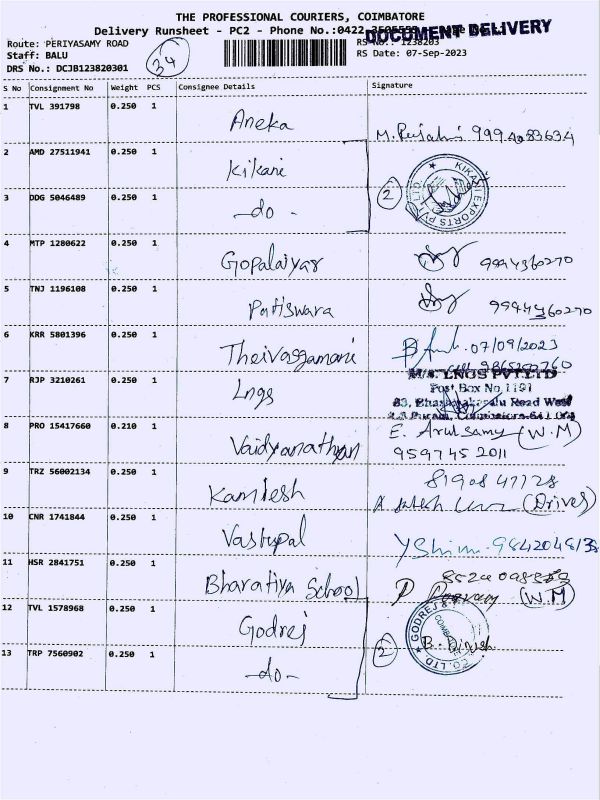 THE PROFESSIONAL COURIERS, COIMBATORE
Delivery Runsheet - PC2 - Phone No.:0422
DOCUMENT DELIVERY
Route: PERIYASAMY ROAD
RS No.: 1238203
Staff: BALU
34
RS Date: 07-Sep-2023
DRS No.: DCJB123820301
S No Consignment No Weight PCS Consignee Details Signature
1 TVL 391798 0.250 1 Aneka
2 AMD 27511941 0.250 1 Kikani
2 KIKANI EXPORTS PVT LTD
3 DDG 5046489 0.250 1 -do-
4 MTP 1280622 0.250 1 Gopalaiyar
5 TNJ 1196108 0.250 1 Patiswara
6 KRR 5801396 0.250 1 Theivasgamani 07/09/2023
7 RJP 3210261 0.250 1 Lngs
M/s. LNGS PVT LTD
Post Box No 1191
8 PRO 15417660 0.210 1 Vaidyanathan E. Arulsamy (W.M)
9597452011
9 TRZ 56002134 0.250 1 Kamlesh
(Driver)
10 CNR 1741844 0.250 1 Vastupal
11 HSR 2841751 0.250 1 Bharatiya School
(W.M)
12 TVL 1578968 0.250 1 Godrej
GODREJ & CO. LTD
2
13 TRP 7560902 0.250 1 -do-